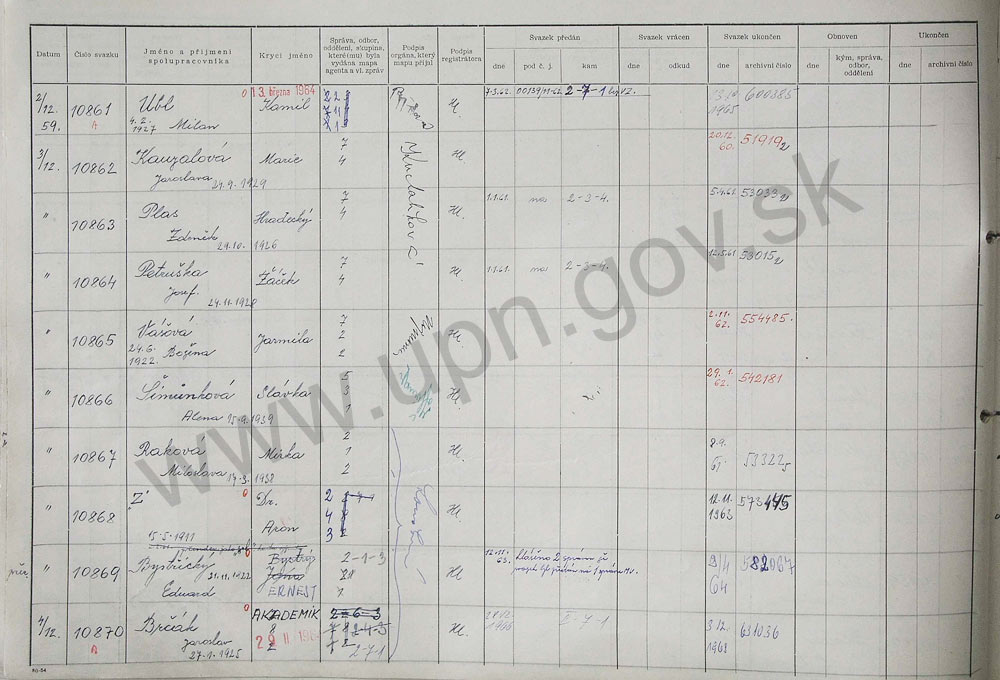 Datum
Číslo svazku
Jméno a příjmení spolupracovníka
Krycí jméno
Správa, odbor, oddělení, skupina, které(mu) byla vydána mapa agenta a vl. zpráv
Podpis orgána, který mapu přijal
Podpis registrátora
Svazek předán
dne
pod č. j.
kam
Svazek vrácen
dne
odkud
Svazek ukončen
dne
archivní číslo
Obnoven
dne
kým, správa, odbor, oddělení
Ukončen
dne
archivní číslo
2/12. 59.
10861
A
Ubl
4. 2. 1927 Milan
13. března 1964
Kamil
Hl.
7.3.62.
2-7-1
1965
600885
3/12.
10862
Kauzalová
Jaroslava 24.9.1929
Marie
7
4
Hl.
20.12. 60.
51919
"
10863
Plas
Zdeněk 29.10. 1926
Hradecký
7
4
Hl.
1.1.61.
2-3-4.
53033
"
10864
Petruška
Josef. 24.11.1928
Žáček
7
4
Hl.
1.1.61.
2-3-4.
12.5.61
53015
"
10865
Vášová
24.6. 1922. Božena
Jarmila
7
2
2
Hl.
2.11. 62.
554485.
"
10866
Šimůnková
Alena 15.9.1939
Slávka
5
3
1
Hl.
29. 1. 62.
542181
"
10867
Raková
Miloslava 14.3. 1938
Mirka
2
1
2
Hl.
8.9. 61
"
10868
"Z"
15.5.1911
Dr.
Aron
2
4
3 2
Hl.
12.11. 1963
573445
"
10869
Bystřický
21.11.1922
Eduard
Bystrý
ERNEST
2-1-3
Hl
12.11. 63.
9/4 64
582067
4/12.
10870
A
Brčák
Jaroslav
27.1.1925
AKADEMIK
2-6-3
2-4-3
2-7-1
Hl.
1966
2-7-1
3/12. 1968
631036
www.upn.gov.sk